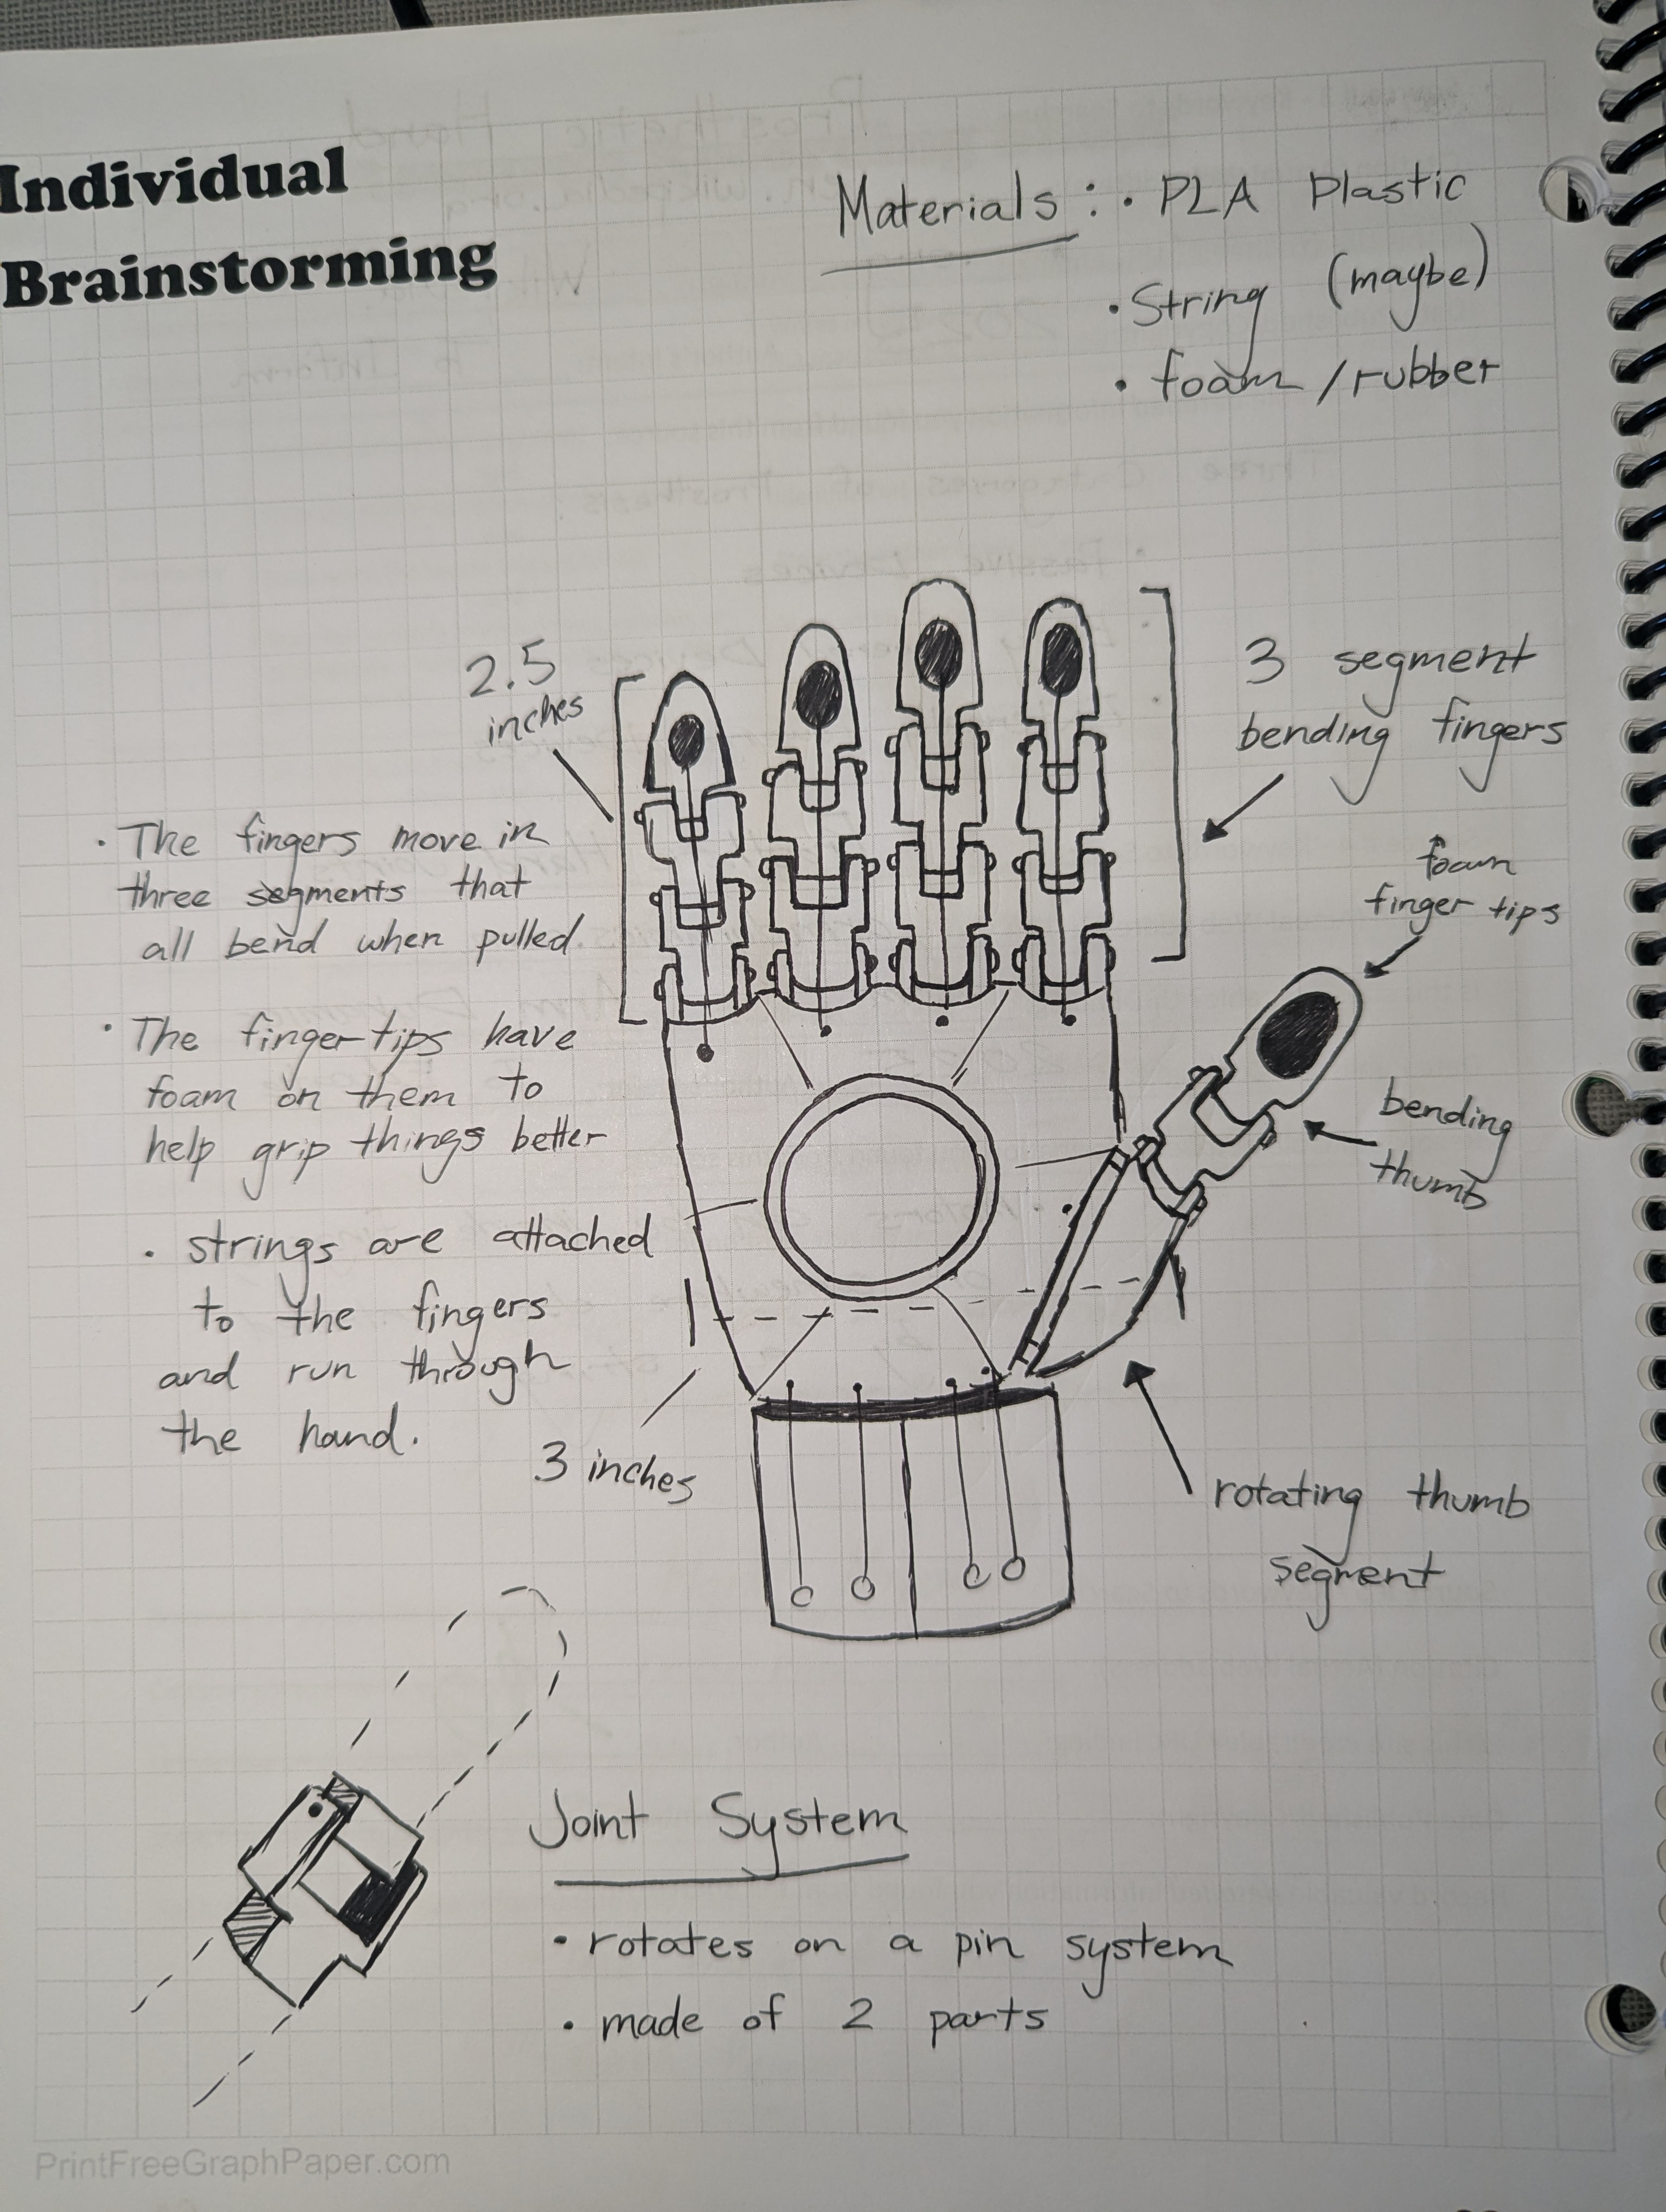 Individual
Brainstorming
Materials : • PLA Plastic
• String (maybe)
• foam / rubber
2.5
inches
3 segment
bending fingers
foam
finger tips
bending
thumb
rotating thumb
segment
• The fingers move in
three segments that
all bend when pulled.
• The finger tips have
foam on them to
help grip things better
• strings are attached
to the fingers
and run through
the hand.
3 inches
Joint System
• rotates on a pin system
• made of 2 parts
PrintFreeGraphPaper.com